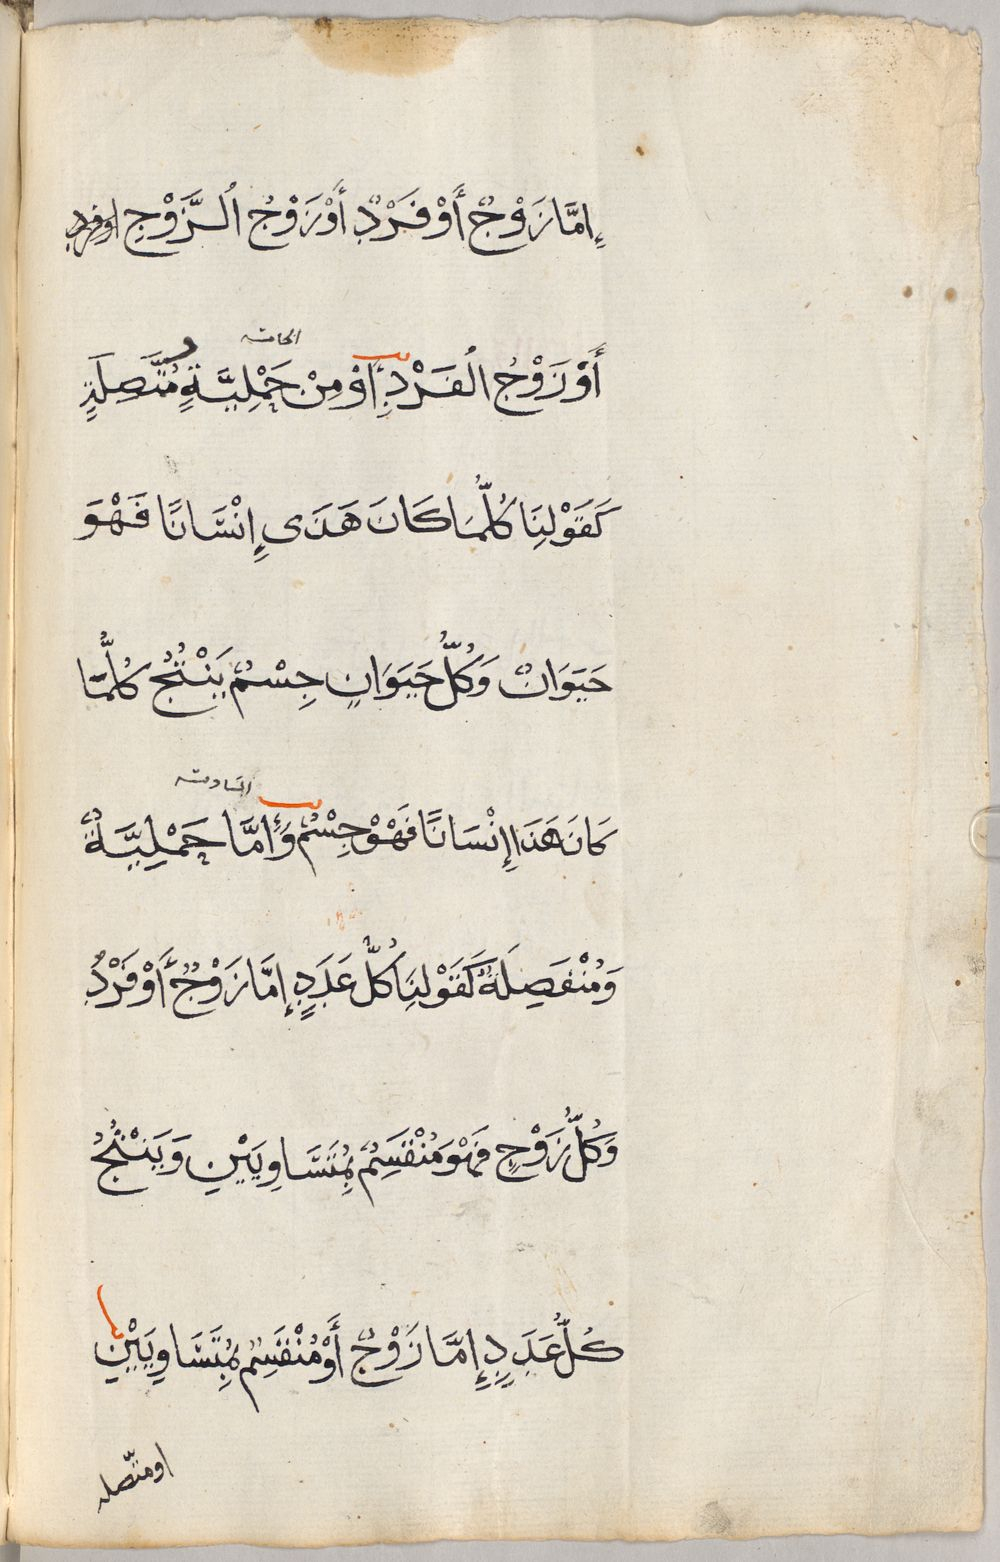 إِمَّا زَوْجٌ أَوْ فَرْدٌ أَوْ زَوْجُ الزَّوْجِ اوفرد
الخامسه
أَوْ زَوْجُ الْفَرْدِ أَوْ مِنْ حَمْلِيَّةٍ و مُتَّصِلَةٍ
كَقَوْلِنَا كُلَّمَا كَانَ هَذَى إِنْسَانًا فَهْوَ
حَيَوَانٌ وَكُلُّ حَيَوَانٍ جِسْمٌ يَنْتُجُ كُلَّمَا
السادسه
كَانَ هَذَا إِنْسَانًا فَهْوَ جِسْمٌ وَإِمَّا حَمْلِيَّةٌ
وَمُنْفَصِلَةٌ كَقَوْلِنَا كُلُّ عَدَدٍ إِمَّا زَوْجٌ أَوْ فَرْدٌ
وَكُلُّ زَوْجٍ فَهْوَ مُنْقَسِمٌ بِمُتَسَاوِيَيْنِ وَيَنْتُجُ
كُلُّ عَدَدٍ إِمَّا زَوْجٌ أَوْ مُنْقَسِمٌ بِمُتَسَاوِيَيْنِ
اومتّصله